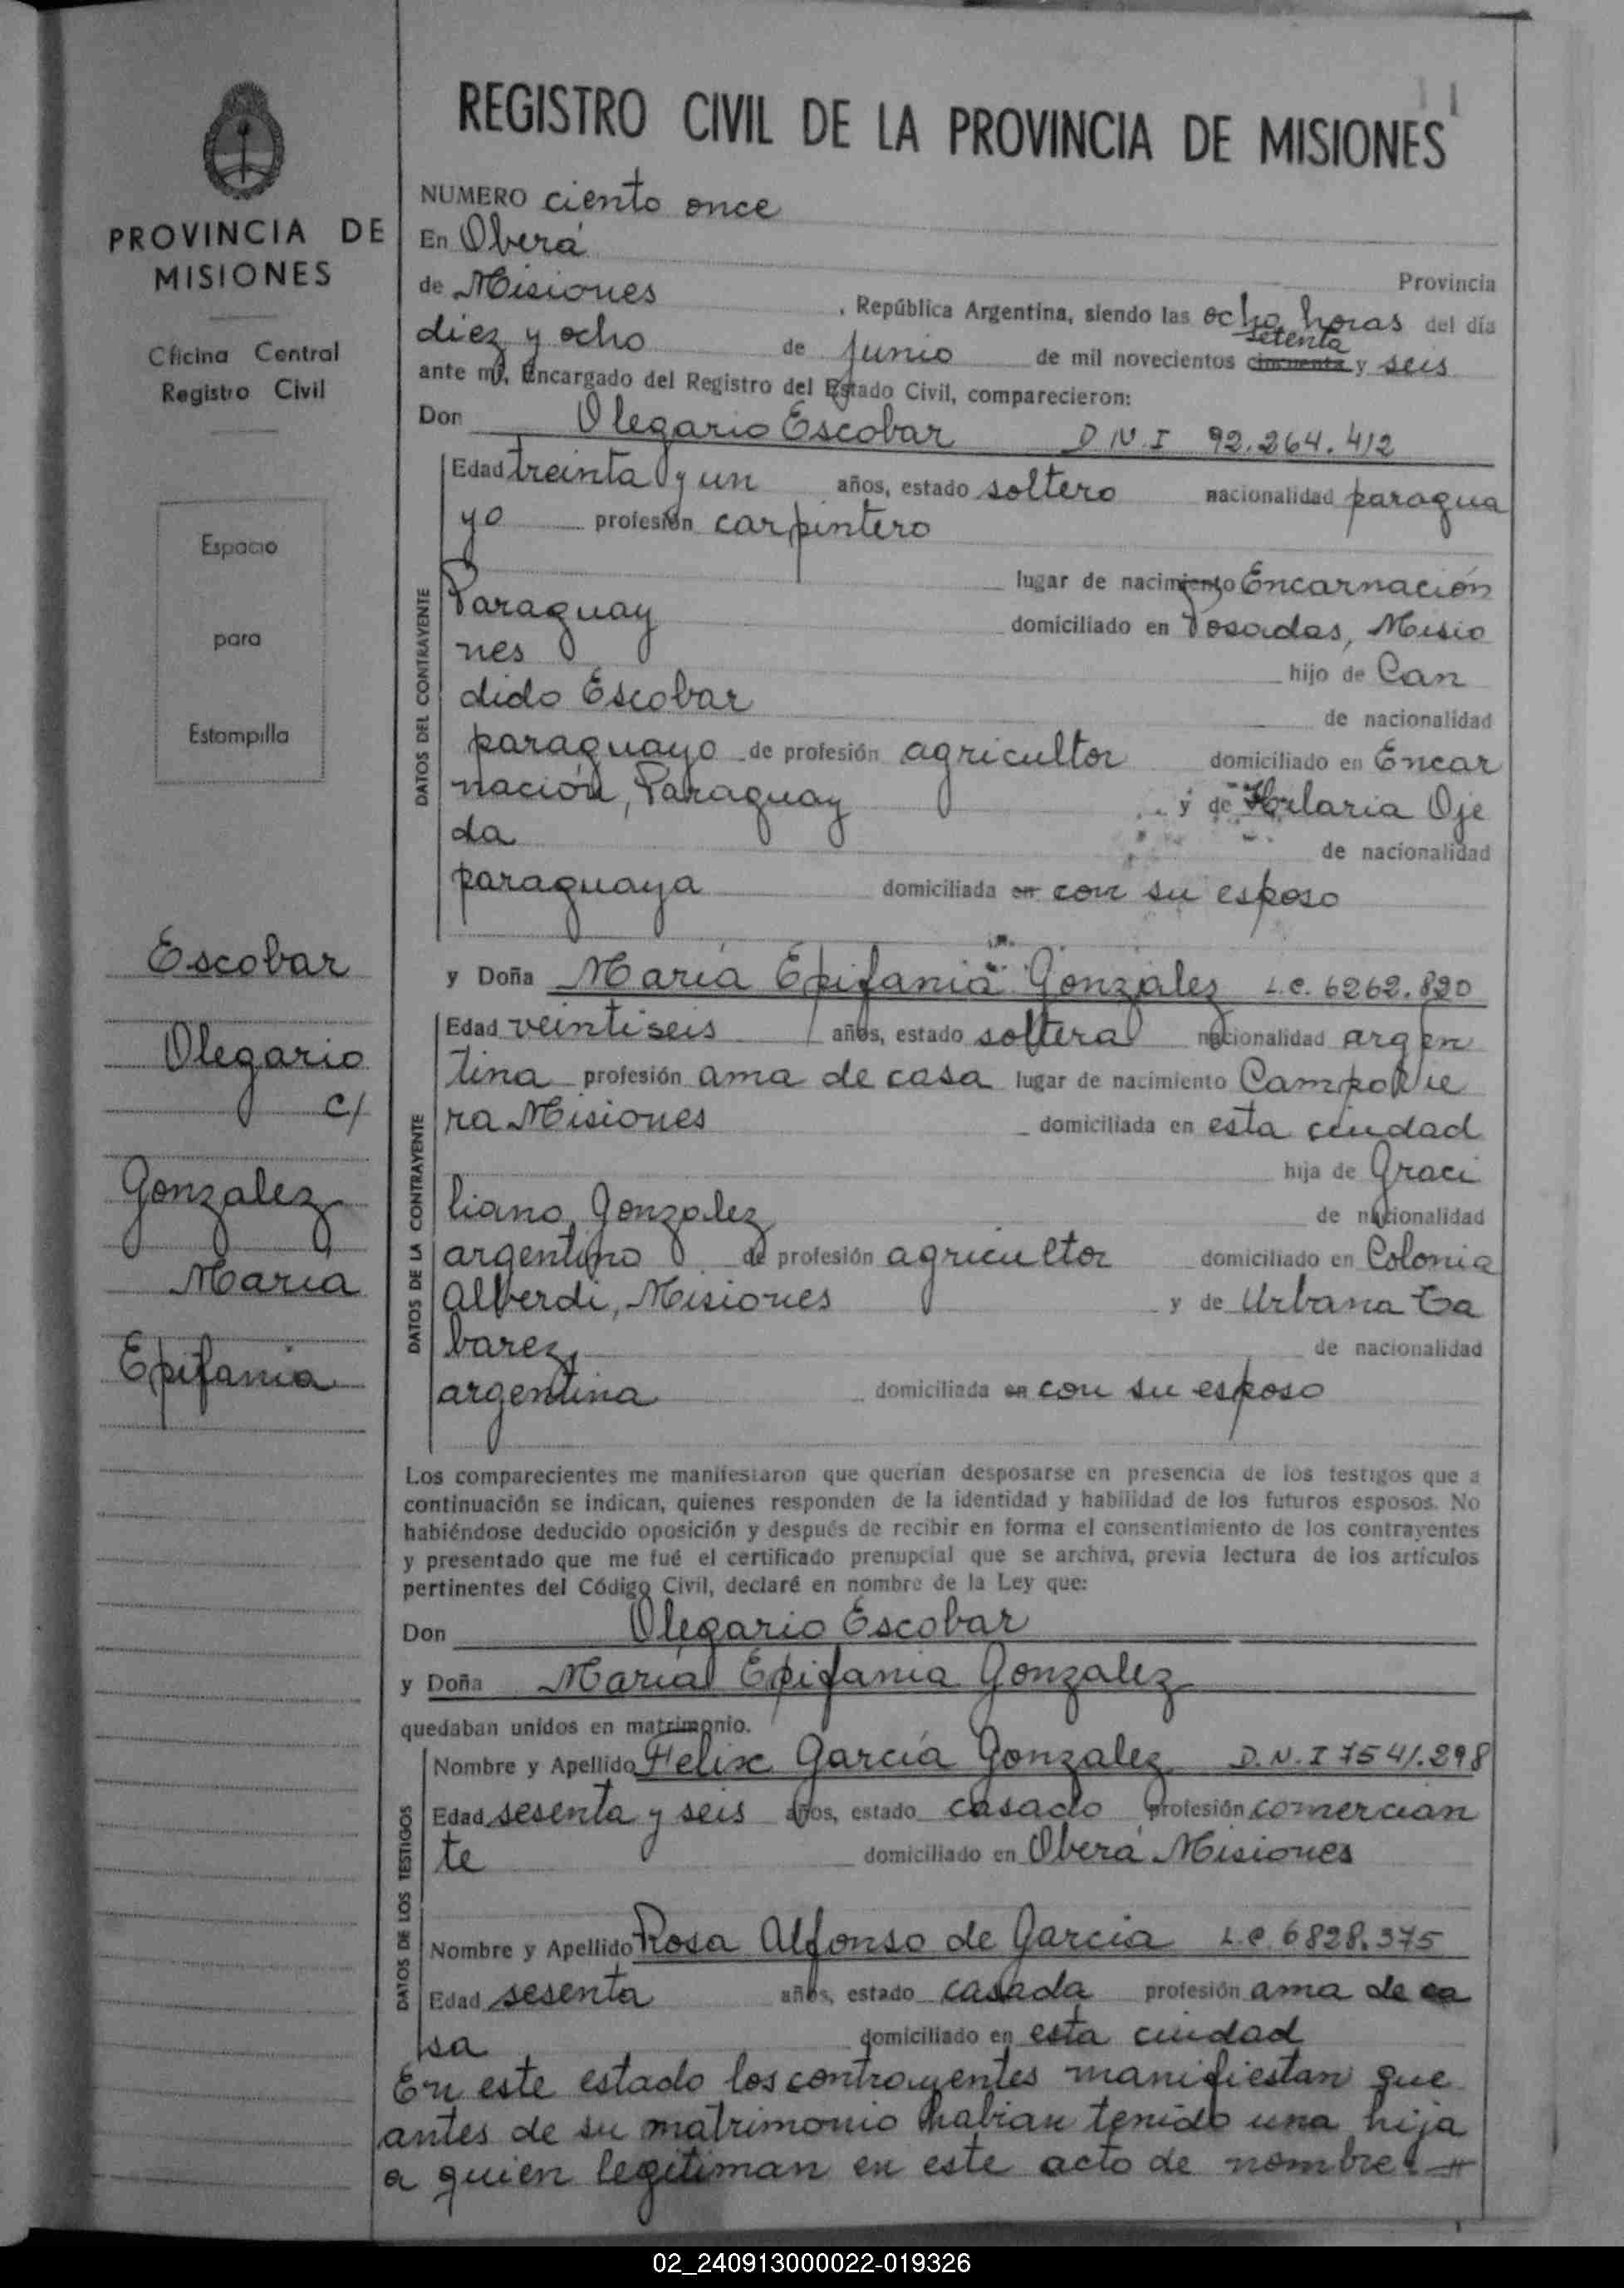 11
REGISTRO CIVIL DE LA PROVINCIA DE MISIONES
PROVINCIA DE
MISIONES
Oficina Central
Registro Civil
Espacio
para
Estampilla
Escobar
Olegario
c/
Gonzalez
Maria
Epifania
NUMERO ciento once
En Oberá
Provincia
de Misiones , República Argentina, siendo las ocho horas del día
setenta
diez y ocho de junio de mil novecientos cincuenta y seis
ante mí, Encargado del Registro del Estado Civil, comparecieron:
Don Olegario Escobar D.N.I 92.264.412
DATOS DEL CONTRAYENTE
Edad treinta y un años, estado soltero nacionalidad paragua
yo profesión carpintero
lugar de nacimiento Encarnación
Paraguay domiciliado en Posadas, Misio
nes hijo de Can
dido Escobar de nacionalidad
paraguayo de profesión agricultor domiciliado en Encar
nación, Paraguay y de Hilaria Oje
da de nacionalidad
paraguaya domiciliada en con su esposo
y Doña María Epifania Gonzalez L.C. 6262.820
DATOS DE LA CONTRAYENTE
Edad veintiseis años, estado soltera nacionalidad argen
tina profesión ama de casa lugar de nacimiento Campo Vie
ra Misiones domiciliada en esta ciudad
hija de Graci
liano Gonzalez de nacionalidad
argentino de profesión agricultor domiciliado en Colonia
Alberdi, Misiones y de Urbana Ta
barez, de nacionalidad
argentina domiciliada en con su esposo
Los comparecientes me manifestaron que querían desposarse en presencia de los testigos que a
continuación se indican, quienes responden de la identidad y habilidad de los futuros esposos. No
habiéndose deducido oposición y después de recibir en forma el consentimiento de los contrayentes
y presentado que me fué el certificado prenupcial que se archiva, previa lectura de los artículos
pertinentes del Código Civil, declaré en nombre de la Ley que:
Don Olegario Escobar
y Doña María Epifania Gonzalez
quedaban unidos en matrimonio.
DATOS DE LOS TESTIGOS
Nombre y Apellido Felix García Gonzalez D.N.I 7541.298
Edad sesenta y seis años, estado casado profesión comercian
te domiciliado en Oberá Misiones
Nombre y Apellido Rosa Alfonso de García L.C. 6828.375
Edad sesenta años, estado casada profesión ama de ca
sa domiciliado en esta ciudad
En este estado los contrayentes manifiestan que
antes de su matrimonio habian tenido una hija
a quien legitiman en este acto de nombre:
02_240913000022-019326